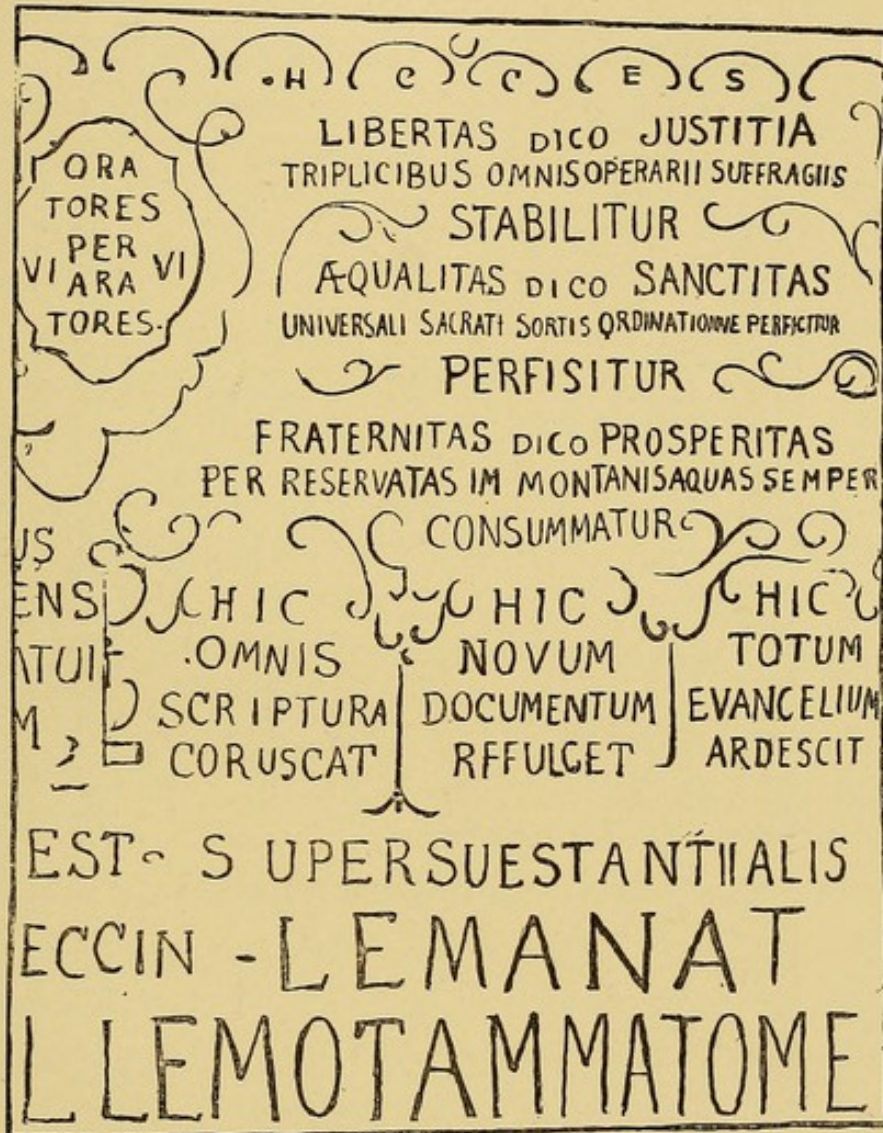 .H C C E S
ORA
TORES
PER
VI ARA VI
TORES.
LIBERTAS DICO JUSTITIA
TRIPLICIBUS OMNISOPERARII SUFFRAGIIS
STABILITUR
ÆQUALITAS DICO SANCTITAS
UNIVERSALI SACRATI SORTIS ORDINATIONVE PERFICITUR
PERFISITUR
FRATERNITAS DICO PROSPERITAS
PER RESERVATAS IM MONTANISAQUAS SEMPER
CONSUMMATUR
US
ENS
ATUIT
M
HIC
.OMNIS
SCRIPTURA
CORUSCAT
HIC
NOVUM
DOCUMENTUM
RFFULGET
HIC
TOTUM
EVANCELIUM
ARDESCIT
EST S UPERSUESTANTIIALIS
ECCIN - LEMANAT
LLEMOTAMMATOME